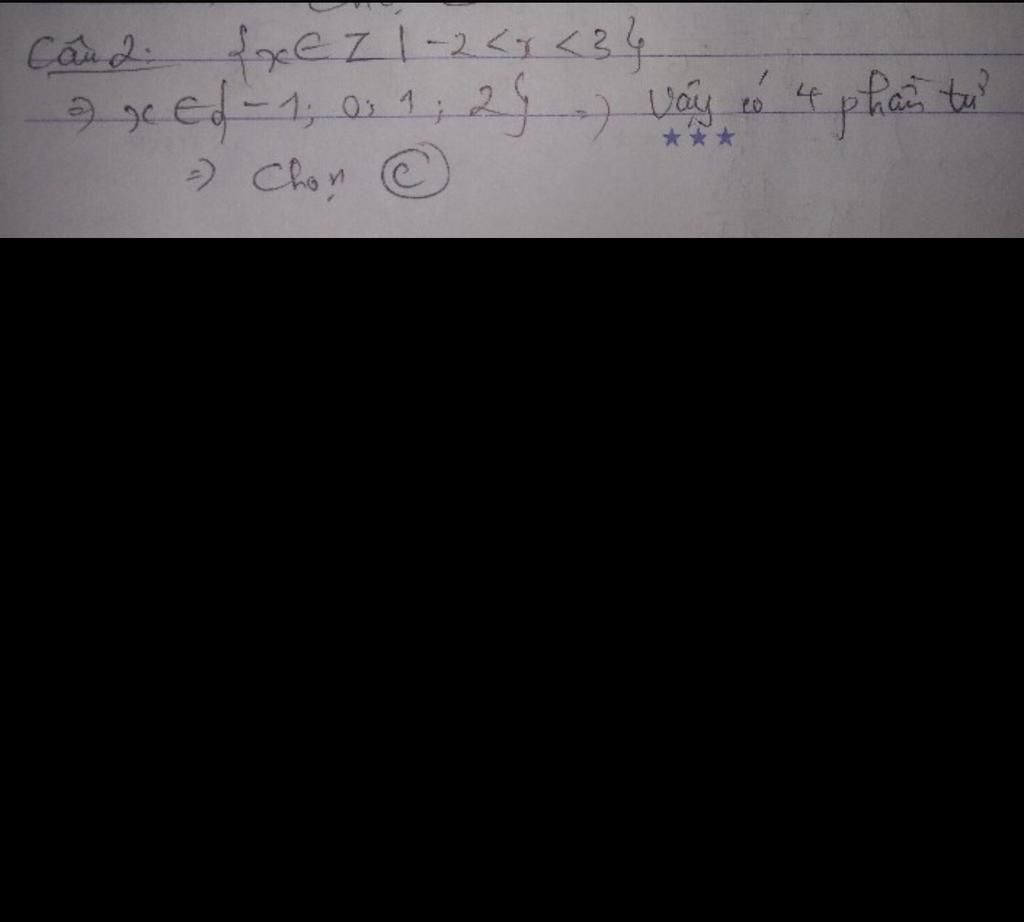 Câu 2: {x ∈ Z | -2 < x < 3}
=> x ∈ {-1; 0; 1; 2} => Vậy có 4 phần tử
★★★
=> Chọn C